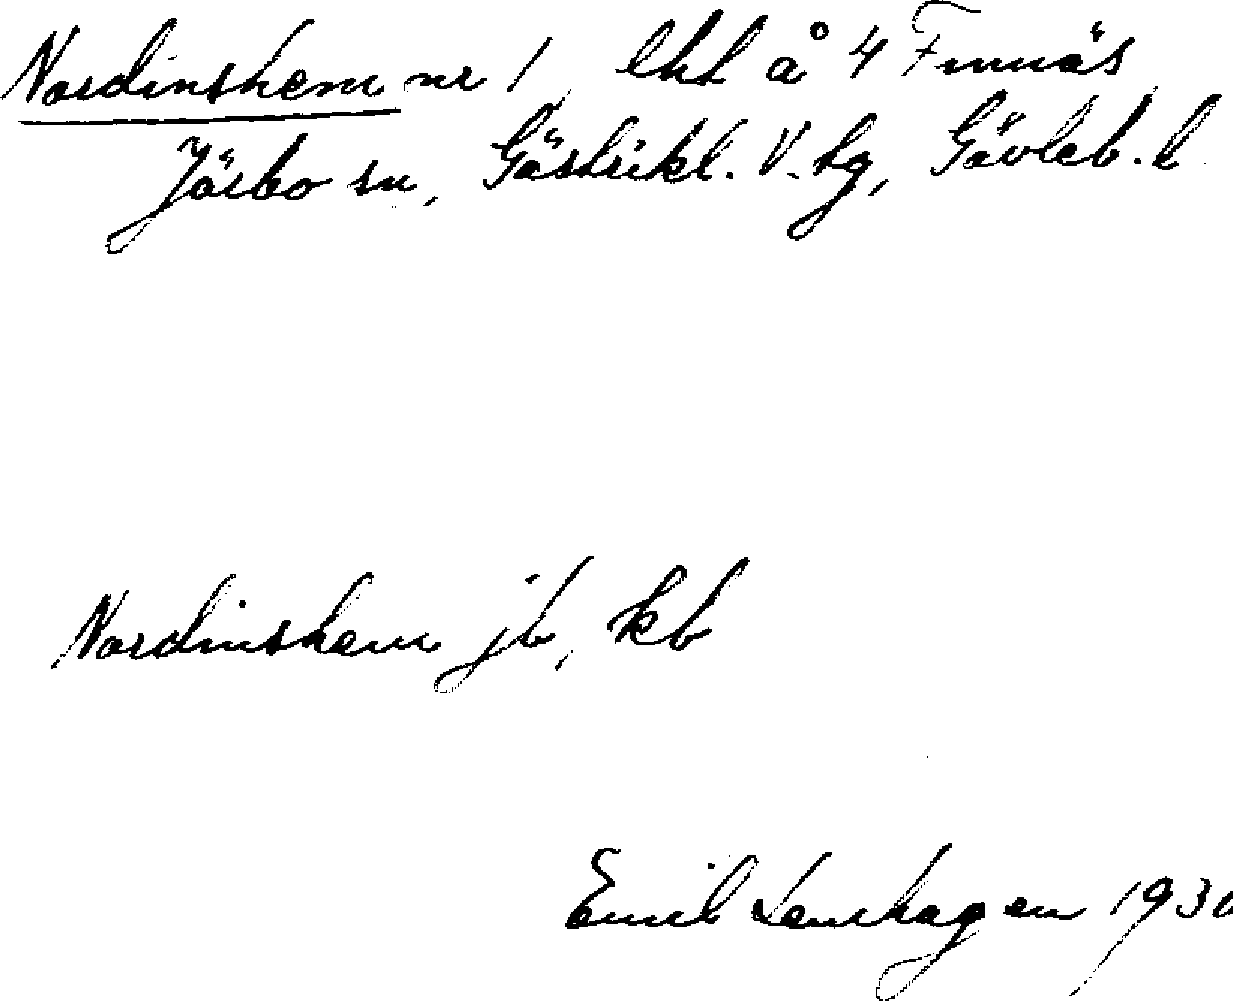 Nordinshem nr 1, lht å 4 Finnäs
Järbo sn, Gästrikl. V. tg, Gävleb. l
Nordinshem jb, kb
Emil Lenhagen 1930